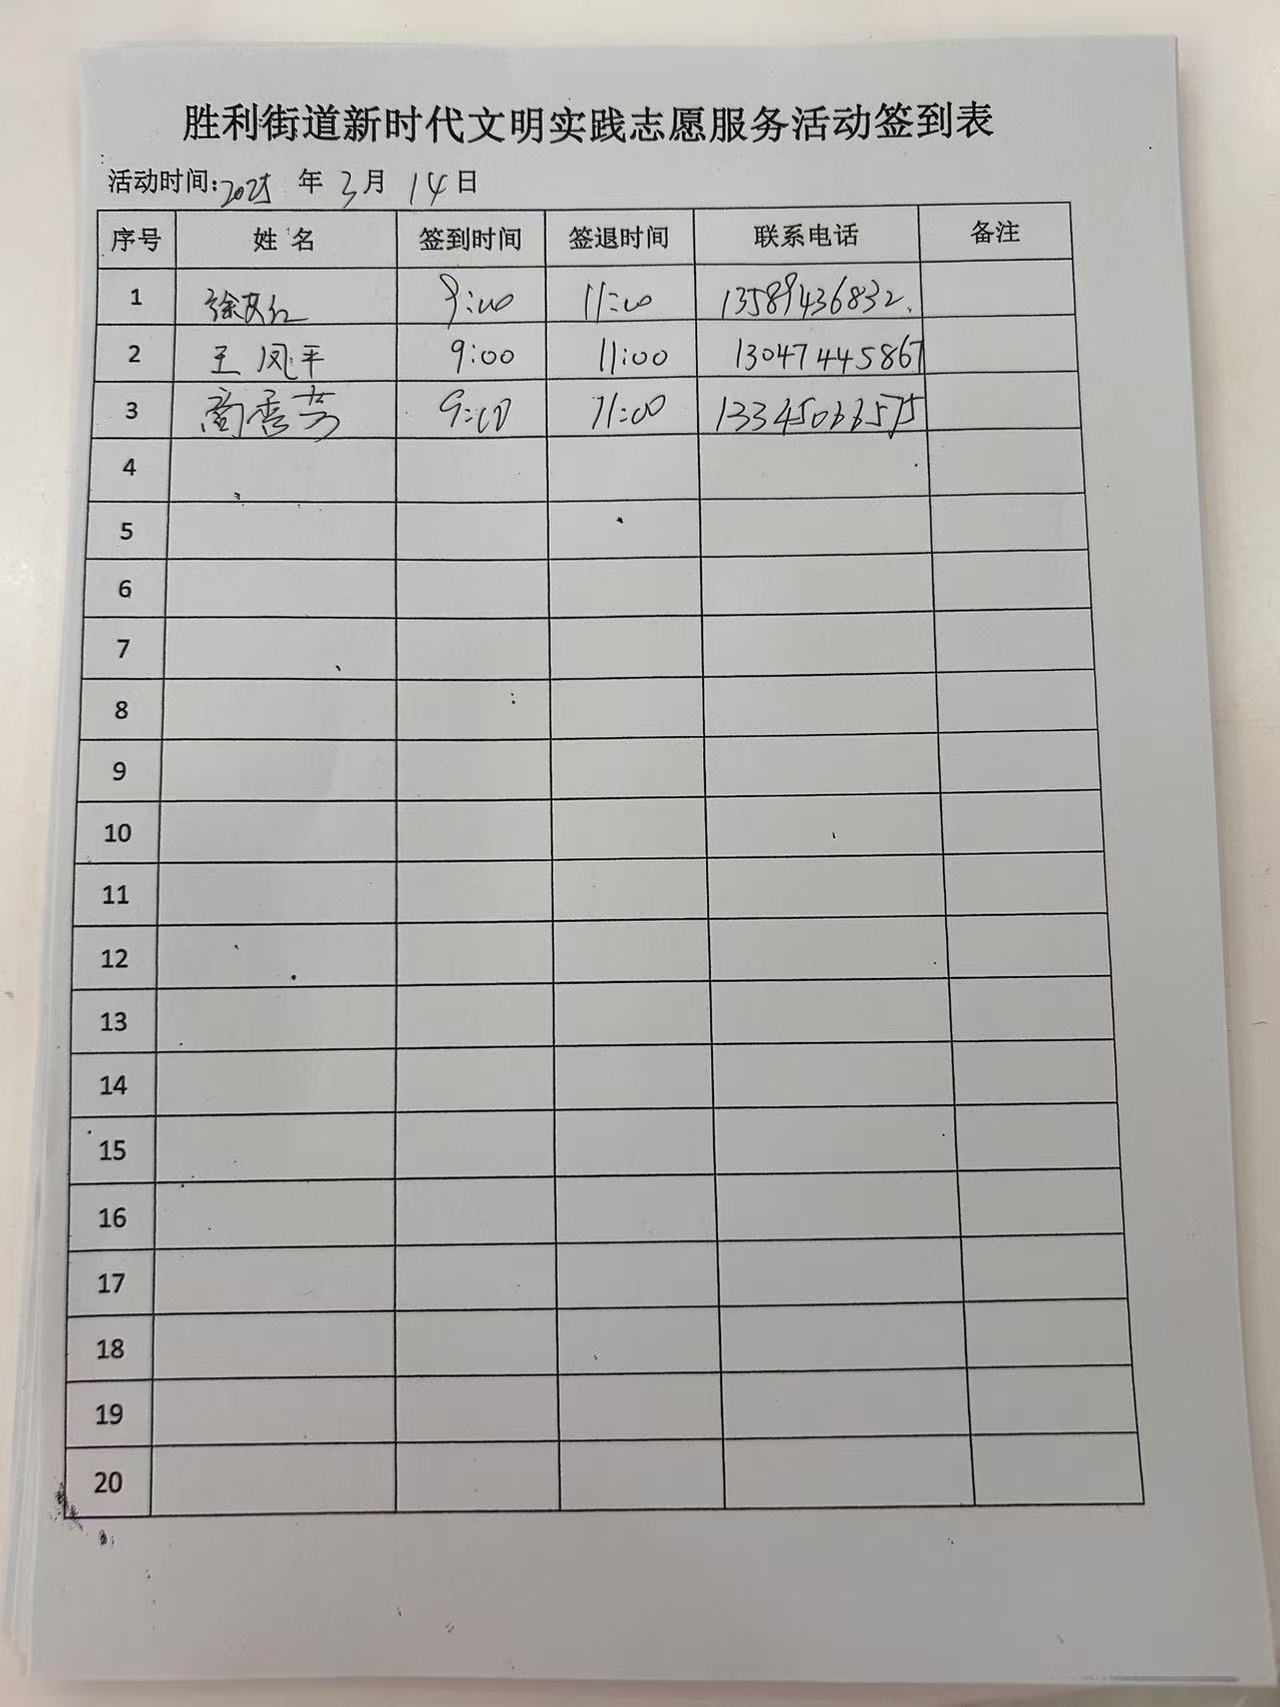 胜利街道新时代文明实践志愿服务活动签到表
活动时间:2025 年 3月 14日
序号 姓 名 签到时间 签退时间 联系电话 备注
1 徐艾红 9:00 11:00 13589436832.
2 王凤平 9:00 11:00 13047445867
3 商秀芳 9:00 11:00 13345066575
4
5
6
7
8
9
10
11
12
13
14
15
16
17
18
19
20